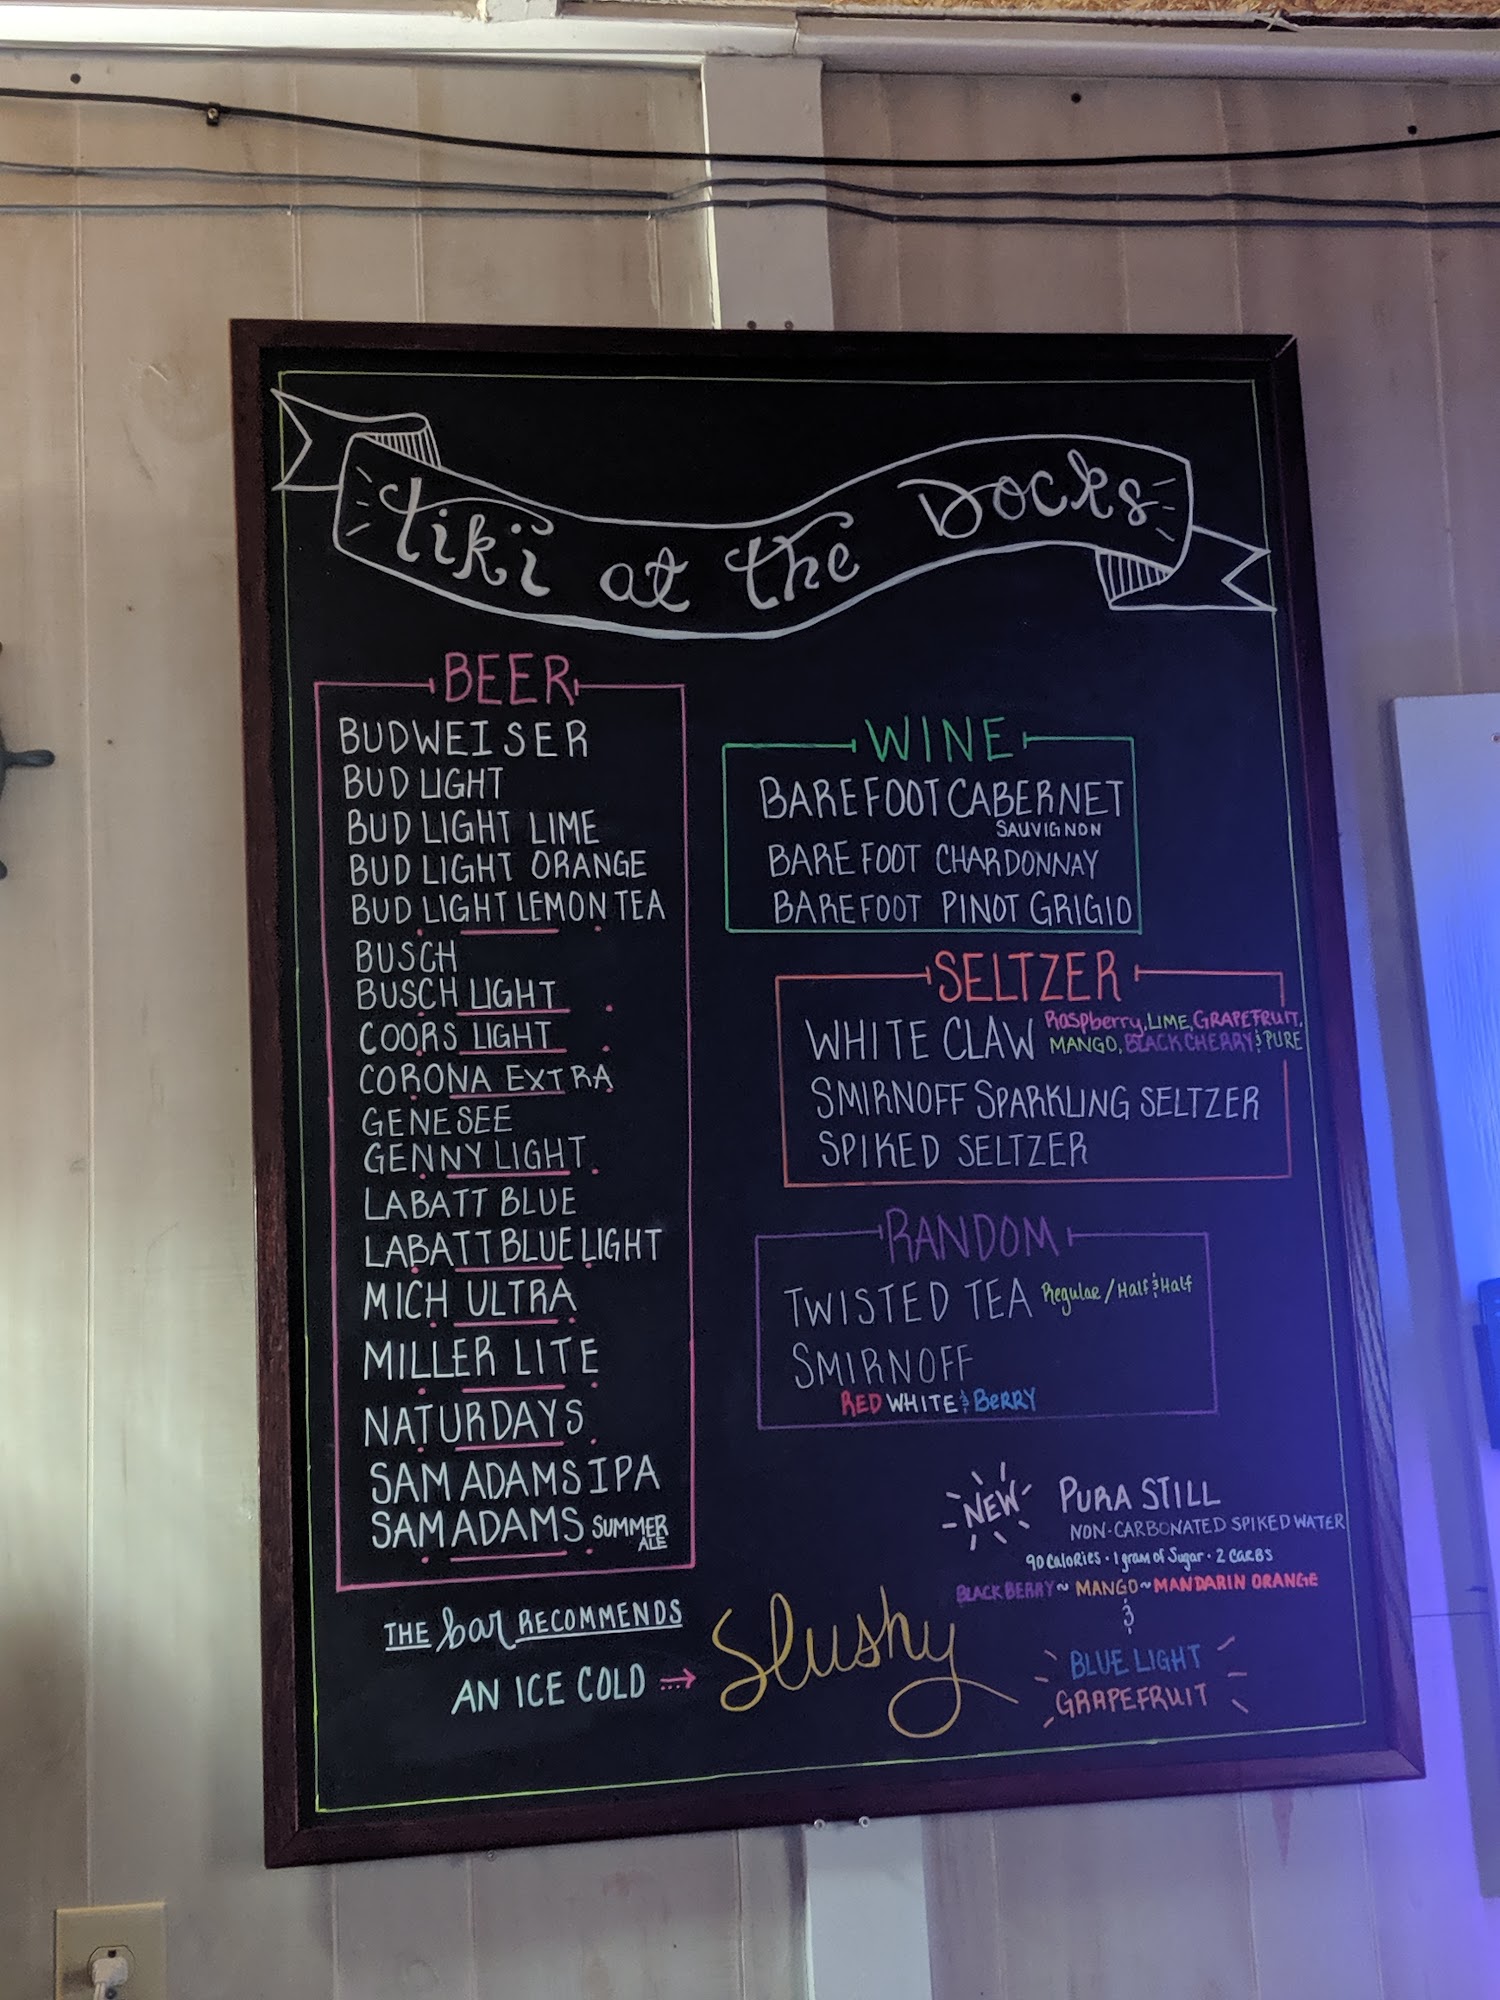 Tiki at the Docks
BEER
BUDWEISER
BUD LIGHT
BUD LIGHT LIME
BUD LIGHT ORANGE
BUD LIGHT LEMON TEA
BUSCH
BUSCH LIGHT
COORS LIGHT
CORONA EXTRA
GENESEE
GENNY LIGHT
LABATT BLUE
LABATT BLUE LIGHT
MICH ULTRA
MILLER LITE
NATURDAYS
SAM ADAMS IPA
SAM ADAMS SUMMER
ALE
THE bar RECOMMENDS
AN ICE COLD → Slushy
WINE
BAREFOOT CABERNET
SAUVIGNON
BAREFOOT CHARDONNAY
BAREFOOT PINOT GRIGIO
SELTZER
WHITE CLAW Raspberry, LIME, GRAPEFRUIT,
MANGO, BLACK CHERRY & PURE
SMIRNOFF SPARKLING SELTZER
SPIKED SELTZER
RANDOM
TWISTED TEA Regular / Half & Half
SMIRNOFF
RED WHITE & BERRY
NEW PURA STILL
NON-CARBONATED SPIKED WATER
90 Calories · 1 gram of Sugar · 2 CARBS
BLACKBERRY ~ MANGO ~ MANDARIN ORANGE
&
BLUE LIGHT
GRAPEFRUIT